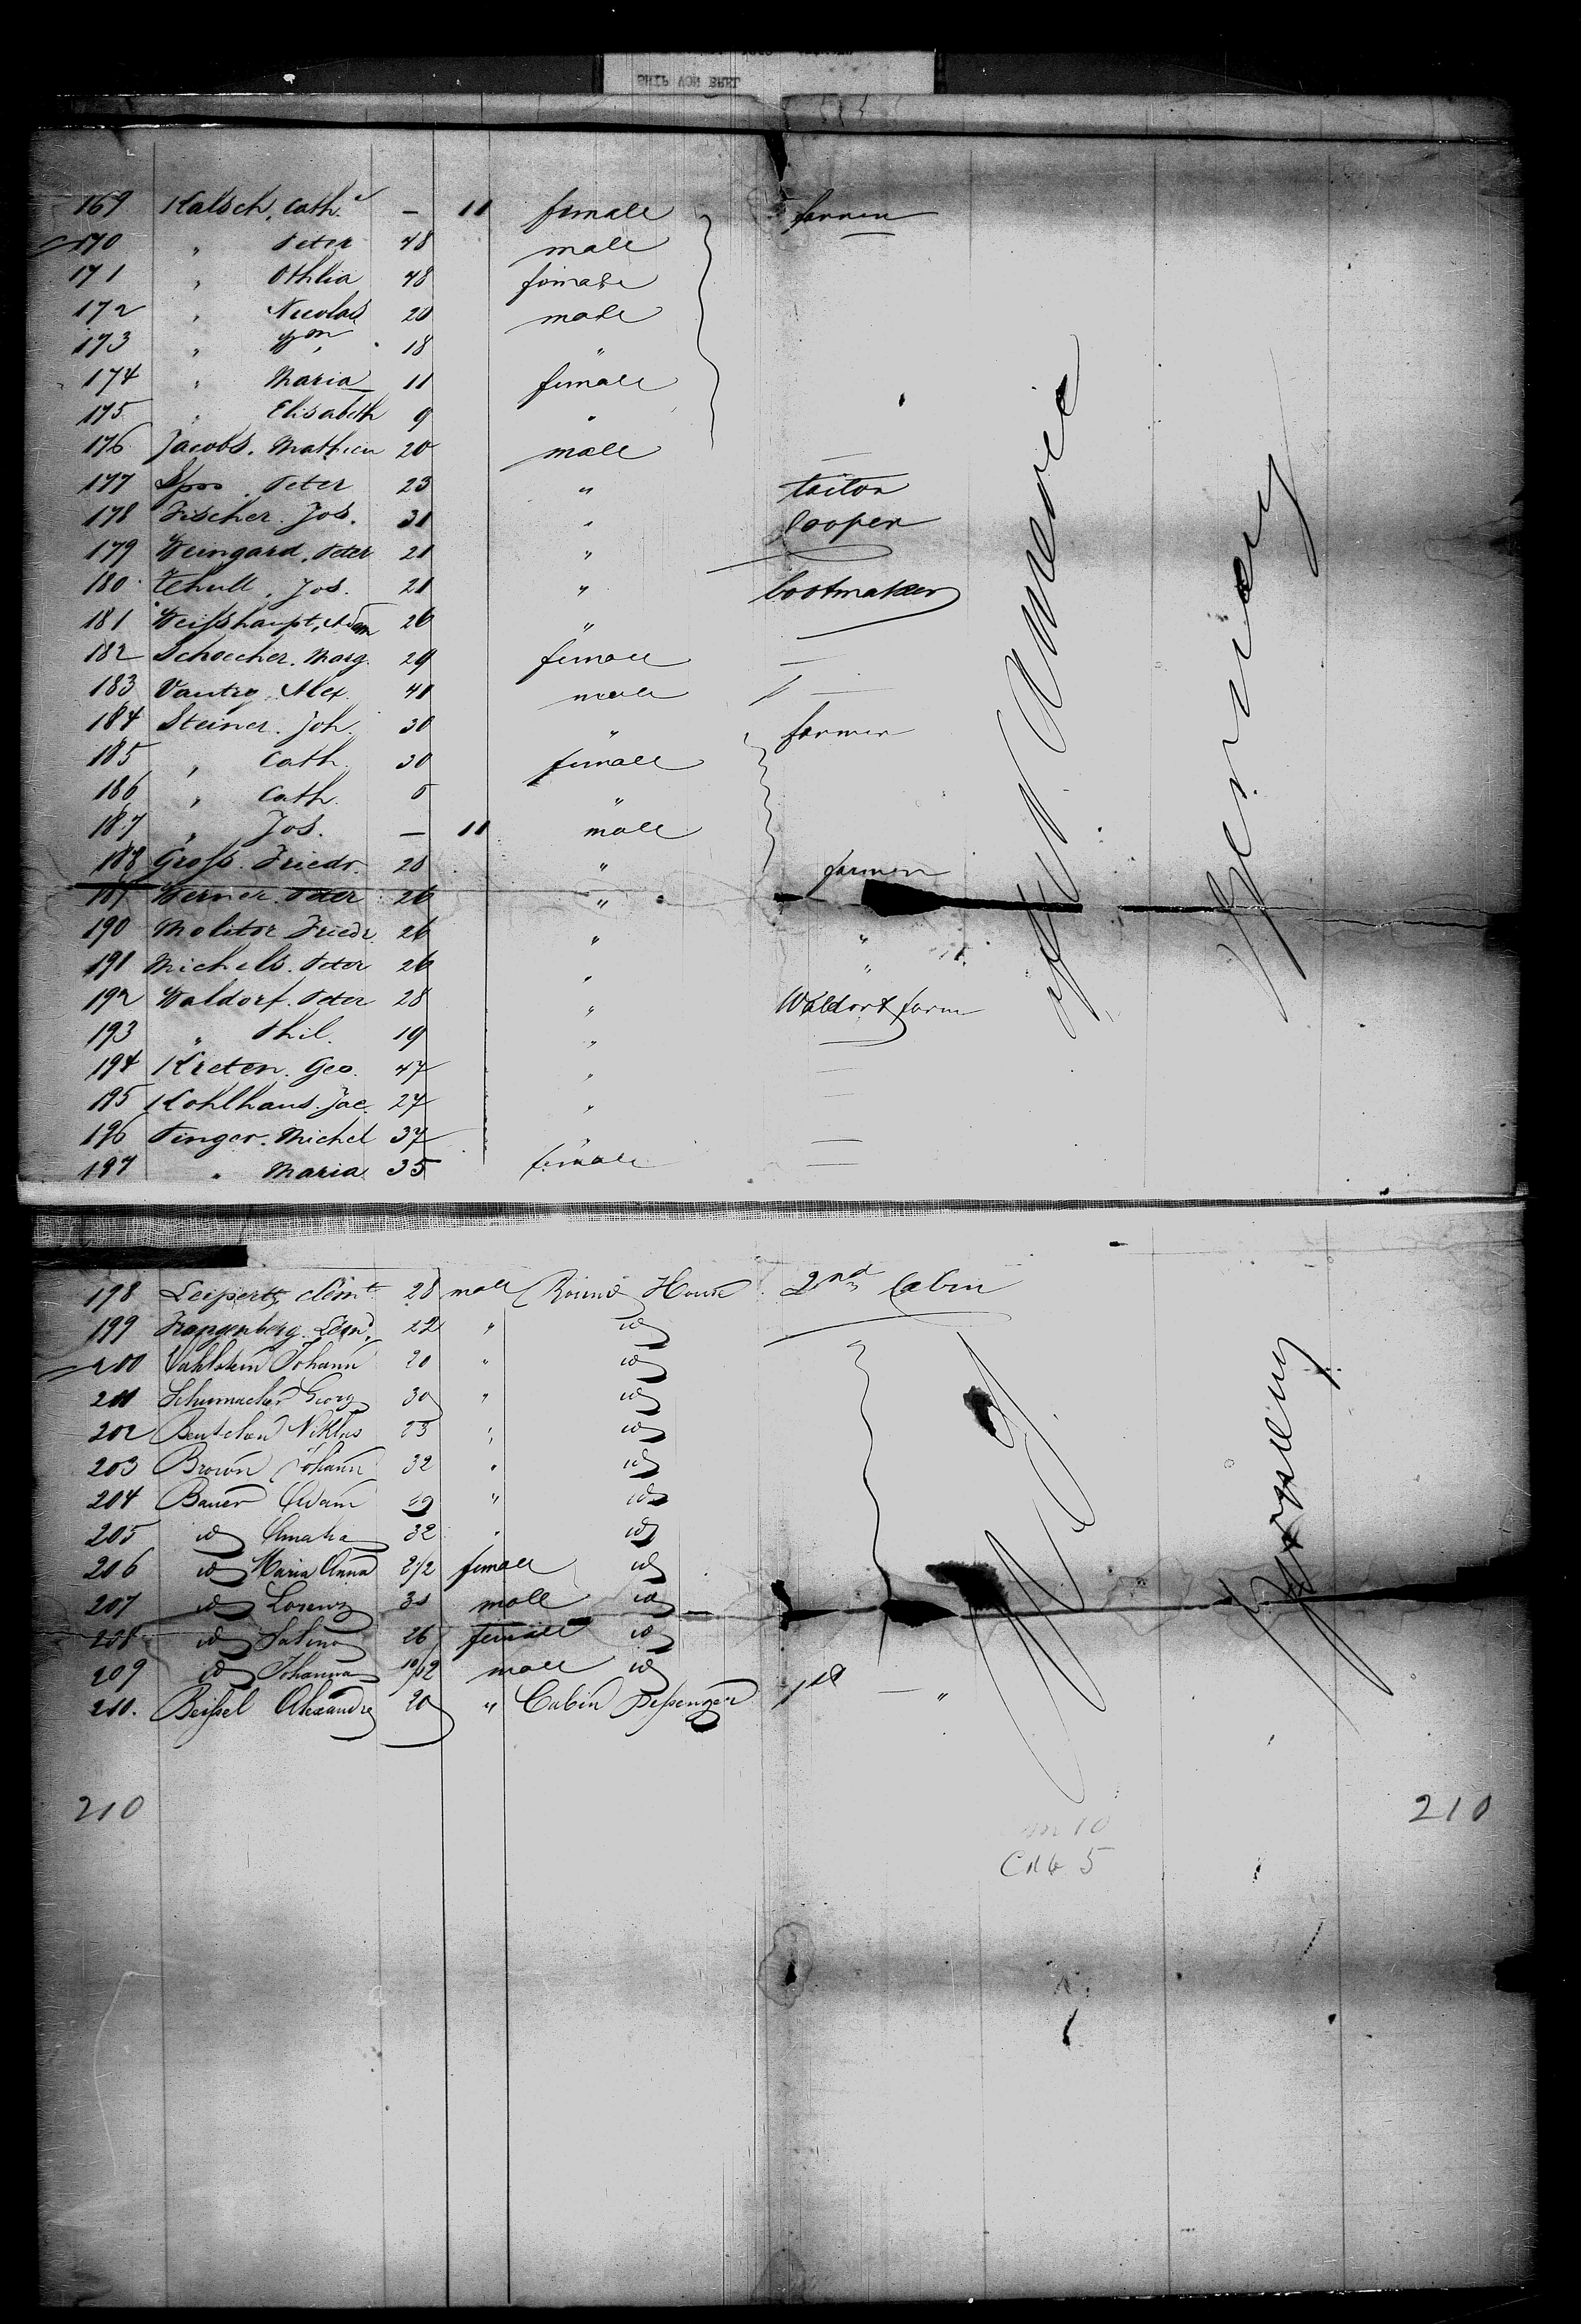 SHIP VON BREL
169 Kalsch, Cath. — 11 female farmer
170 " Peter 48 male
171 " Othlia 48 female
172 " Nicolas 20 male
173 " 18 "
174 " Maria 11 female
175 " Elisabeth 9 "
176 Jacobs. Mathieu 20 male —
177 Spoo. Peter 23 " tailor
178 Fischer. Jos. 31 " Cooper
179 Weingard, Peter 21 "
180 Jos. 21 " bootmaker
181 Weisshaupt, Adam 26 "
182 Schoecher. Marg. 29 female —
183 Alex. 41 male —
184 Steiner. Joh. 30 " farmer
185 " Cath. 30 female
186 " Cath. "
187 " Jos. — 11 male
188 Gross. Friedr. 28 " farmer
189 Werner. Peter 26 "
190 Molitor Friedr. 26 " "
191 Michels. Peter 26 " "
192 Waldorf. Peter 28 " Waldorf farm
193 " Phil. 19 " —
194 Kreten. Geo. 47 " —
195 Kohlhaus. Jac. 27 " —
196 Pinger. Michel 37 " —
197 " Maria 35 female —
N. Amerie
Germany
198 Leipertz, Clemt 28 male Round House 2nd Cabin
199 Frangenberg. 22 " id
200 Vahlstein Johann 20 " id
201 Schumacher Georg 30 " id
202 Niklas 23 " id
203 Brown Johann 32 " id
204 Bauer Adam 29 " id
205 id Amalia 32 " id
206 id Maria Anna 2 1/2 female id
207 id Lorenz 31 male id
208 id 26 female id
209 id Johanna 10/12 male id
210. Beissel Alexandre 20 " Cabin Passenger 1st — "
N. A.
Germany
210 210
Cab 5